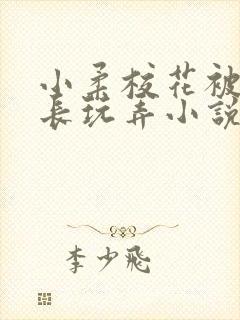 小柔校花被
長玩弄小説
李少飛